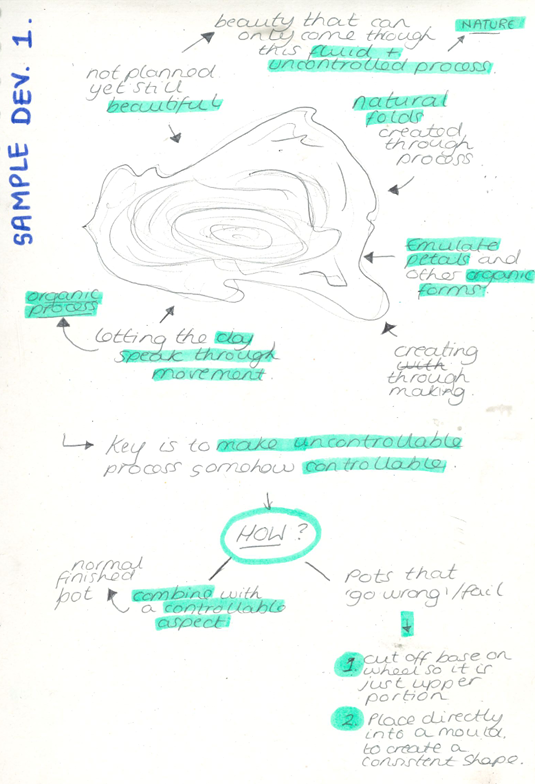 SAMPLE DEV. 1.
beauty that can
only come through
this fluid +
uncontrolled process.
NATURE!
not planned
yet still
beautiful
natural
folds
created
through
process
Emulate
petals and
other organic
forms!
organic
process
letting the day
speak through
movement.
creating
with
through
making.
Key is to make uncontrollable
process somehow controllable.
HOW?
normal
finished
pot
combine with
a controllable
aspect!
Pots that
'go wrong'/fail
1. cut off base on
wheel so it is
just upper
portion
2. Place directly
into a mould,
to create a
consistent shape.